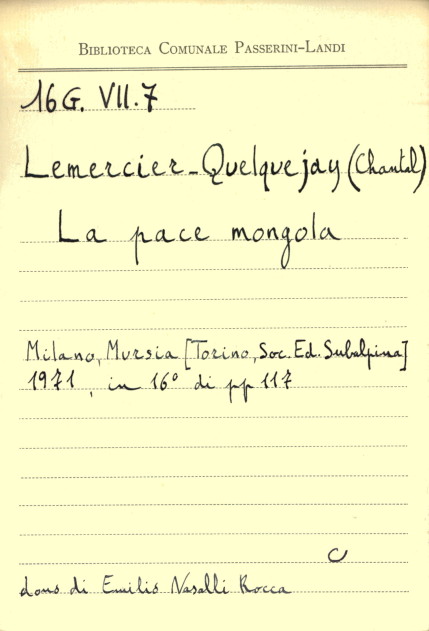 BIBLIOTECA COMUNALE PASSERINI-LANDI
16G. VII.7
Lemercier-Quelquejay (Chantal)
La pace mongola
Milano, Mursia [Torino, Soc. Ed. Subalpina]
1971, in 16° di pp 117
C
dono di Emilio Nasalli Rocca